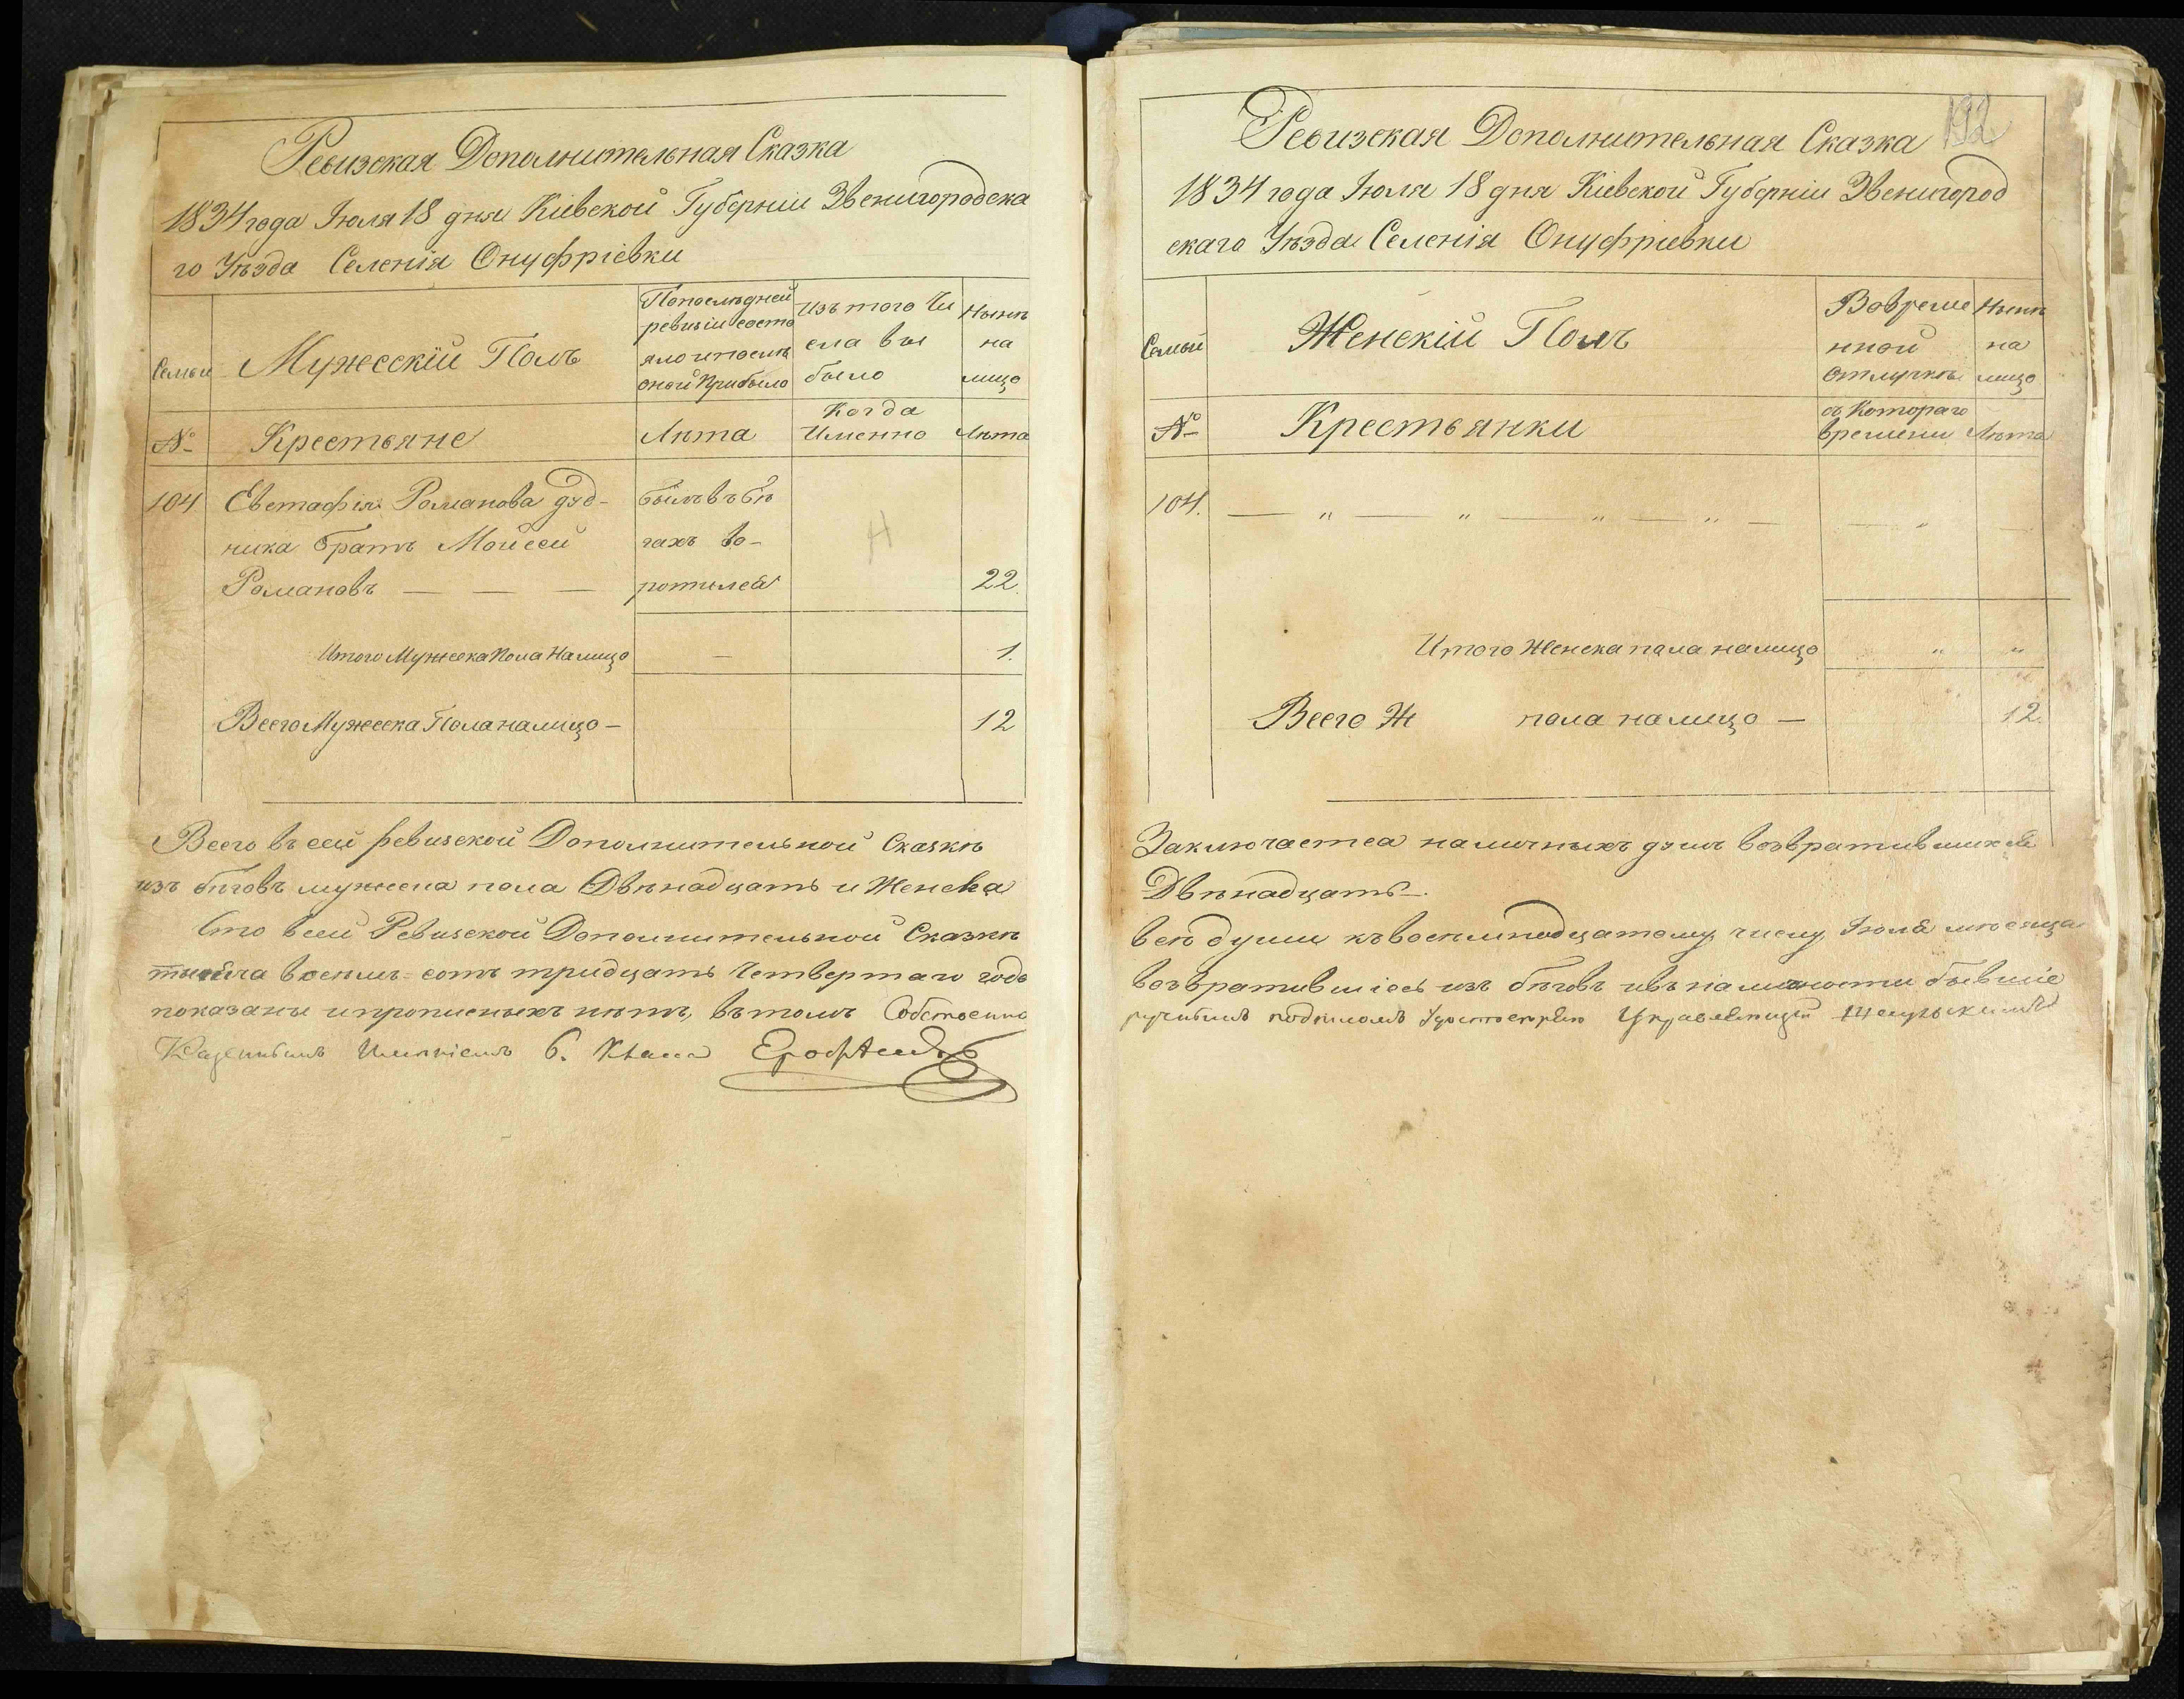 Ревизская Дополнительная Сказка
1834 года Іюля 18 дня Кіевской Губерніи Звенигородска
го Уѣзда Селенія Онуфріевки
Семьи
Мужескій Полъ
Попослѣдней
ревизіи состо
яло ипослѣ
оной прибыло
Изъ того Чи
сла вы
было
Нынѣ
на
лицо
№
Крестьяне
Лѣта
Когда
Именно
Лѣта
104 Евстафія Романова дуд- былъ въ бѣ
ника братъ Мойсей гахъ во-
Романовъ — — — ротился 22.
Итого Мужеска Пола Налицо — 1.
Всего Мужеска Пола налицо — 12
Всего въ сей ревизской Дополнительной Сказкѣ
изъ бѣговъ мужеска пола Двѣнадцать и Женска
Что всей Ревизской Дополнительной Сказкѣ
тысяча восемь сотъ тридцать Четвертаго года
показаны ипрописныхъ нѣтъ, въ томъ Собственно
Казеннымъ Имѣніемъ 6. Класса Ерофѣевъ
192
Ревизская Дополнительная Сказка
1834 года Іюля 18 дня Кіевской Губерніи Звенигород
скаго Уѣзда Селенія Онуфріевки
Семьи
Женскій Полъ
Вовреме
нной
отлучкѣ
Нынѣ
на
лицо
№
Крестьянки
съ Котораго
времени
Лѣта
104. — " — " — " — " — — " —
Итого Женска пола налицо " "
Всего Ж пола налицо — 12.
Заключается наличныхъ душъ возвратившихся
Двѣнадцать —.
всѣ души къ восемнадцатому числу Іюля мѣсяца
возвратившіесь изъ бѣговъ ивъ наличности бывшіе
ручнымъ подписомъ Удостоверяю Управляющій